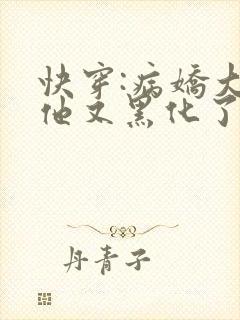 快穿:病娇大
他又黑化了
丹青子